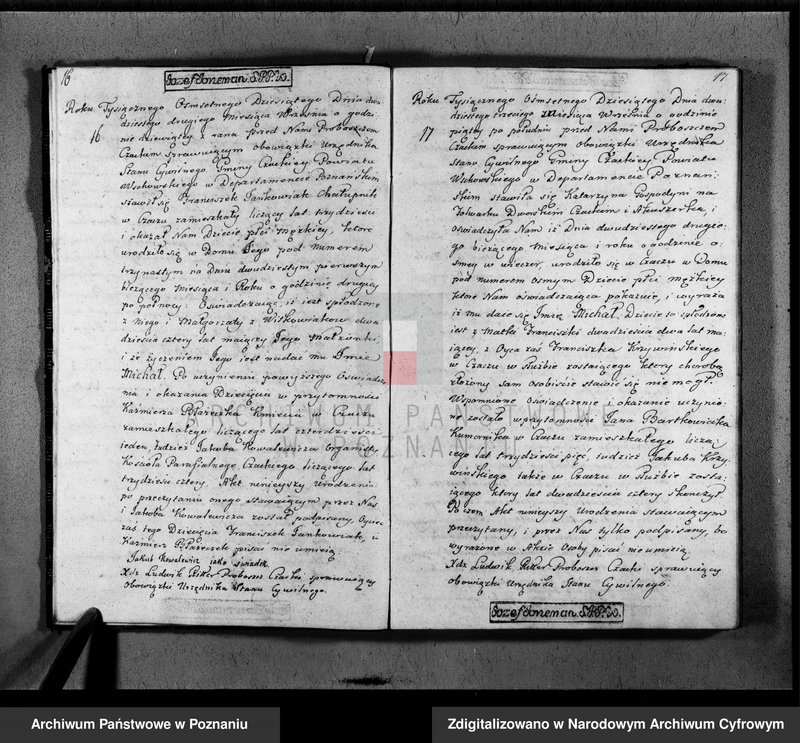 16
Jozef Joneman. S.P.P.W.
Roku Tysiącznego Osmsetnego Dziesiątego Dnia dwu
dziestego drugiego Miesiąca Września o godzi
16
nie dziewiątey z rana przed Nami Proboszczem
Czackim sprawuiącym obowiązki Urzędnika
Stanu Cywilnego Gminy Czackiey Powiatu
Wschowskiego w Departamencie Poznańskim
stawił się Franciszek Jankowiak Chałupnik
w Czaczu zamieszkały liczący lat trzydzieści
i okazał Nam Dziecię płci męzkiey, które
urodziło się w Domu Jego pod numerem
trzynastym na dniu dwudziestym pierwszym
bieżącego miesiąca i Roku o godzinie drugiey
po północy: Oświadczaiąc, iż iest spłodzone
z niego i Małgorzaty z Witkowiaków dwa
dzieścia cztery lat maiący Jego Małżonki
i że życzeniem Jego iest nadać mu Imie
Michał. Po uczynieniu powyższego Oświadcze
nia i okazania Dziecięcia w przytomności
Kazmierza Kmiecia w Czaczu
zamieszkałego liczącego lat czterdzieści
ieden, tudzież Jakoba Kowalewicza Organisty
Kościoła Parafialnego Czackiego liczącego lat
trzydzieści cztery. Akt ninieyszy Urodzenia
po przeczytaniu onego stawaiącym przez Nas
i Jakoba Kowalewicza został podpisany, Oyciec
zaś tego Dziecięcia Franciszek Jankowiak, i
Kazmierz pisać nie umieią.
Jakub Kowalewicz jako swiadek
Xdz Ludwik Proboszcz Czacki sprawuiący
Obowiązki Urzędnika Stanu Cywilnego.
17
Roku Tysiącznego Osmsetnego Dziesiątego Dnia dwu
dziestego trzeciego Miesiąca Września o godzinie
17
piątey po południu przed Nami Proboszczem
Czackim sprawuiącym obowiązki Urzędnika
Stanu Cywilnego Gminy Czackiey Powiatu
Wschowskiego w Departamencie Poznań
skim stawiła się Katarzyna Gospodyni na
Folwarku Dworskim Czackim i Akuszerka, i
oświadczyła Nam iż Dnia dwudziestego drugie
go bieżącego Miesiąca i roku o godzinie o
smey w wieczor, urodziło się w Czaczu w Domu
pod numerem osmym Dziecie płci męzkiey
które Nam oświadczaiąca pokazuie, i wyraża
iż mu daie się Imię Michał. Dziecie to spłodzone
iest z Matki Franciszki dwadzieścia dwa lat ma
iącey, z Oyca zaś Franciszka Krzywińskiego
w Czaczu w służbie zostaiącego który chorobą
złożony sam osobiście stawić się nie mógł.
Wspomnione oświadczenie i okazanie uczynio
ne zostało w przytomności Jana Bartkowiaka
Komornika w Czaczu zamieszkałego liczą
cego lat trzydzieści pięć, tudzież Jakuba Krzy
wińskiego także w Czaczu w służbie zosta
iącego który lat dwadzieścia cztery skończył.
Poczem Akt ninieyszy Urodzenia stawaiącym
przeczytany, i przez Nas tylko podpisany, bo
wyrażone w Akcie Osoby pisać nie umieią
Xdz Ludwik Proboszcz Czacki sprawuiący
obowiązki Urzędnika Stanu Cywilnego.
Jozef Joneman. S.P.P.W.
ARCHIWUM PAŃSTWOWE
W POZNANIU
Archiwum Państwowe w Poznaniu
Zdigitalizowano w Narodowym Archiwum Cyfrowym